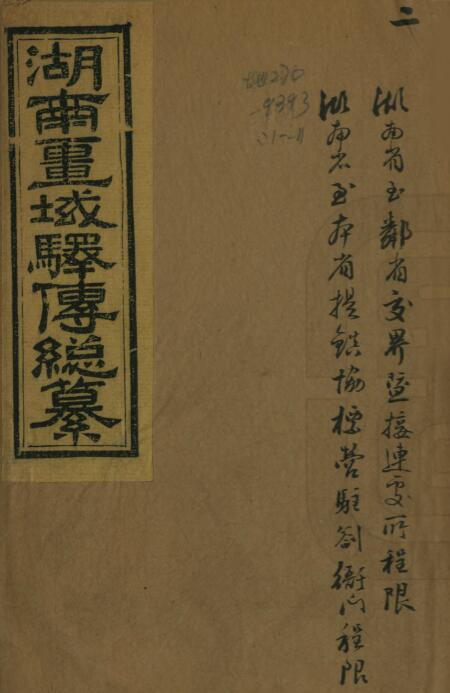 二
湖南省至鄰省交界暨接連處所程限
湖南省至本省提鎮協標營駐劄衙門程限
地230
-9393
湖南畺域驛傳總纂